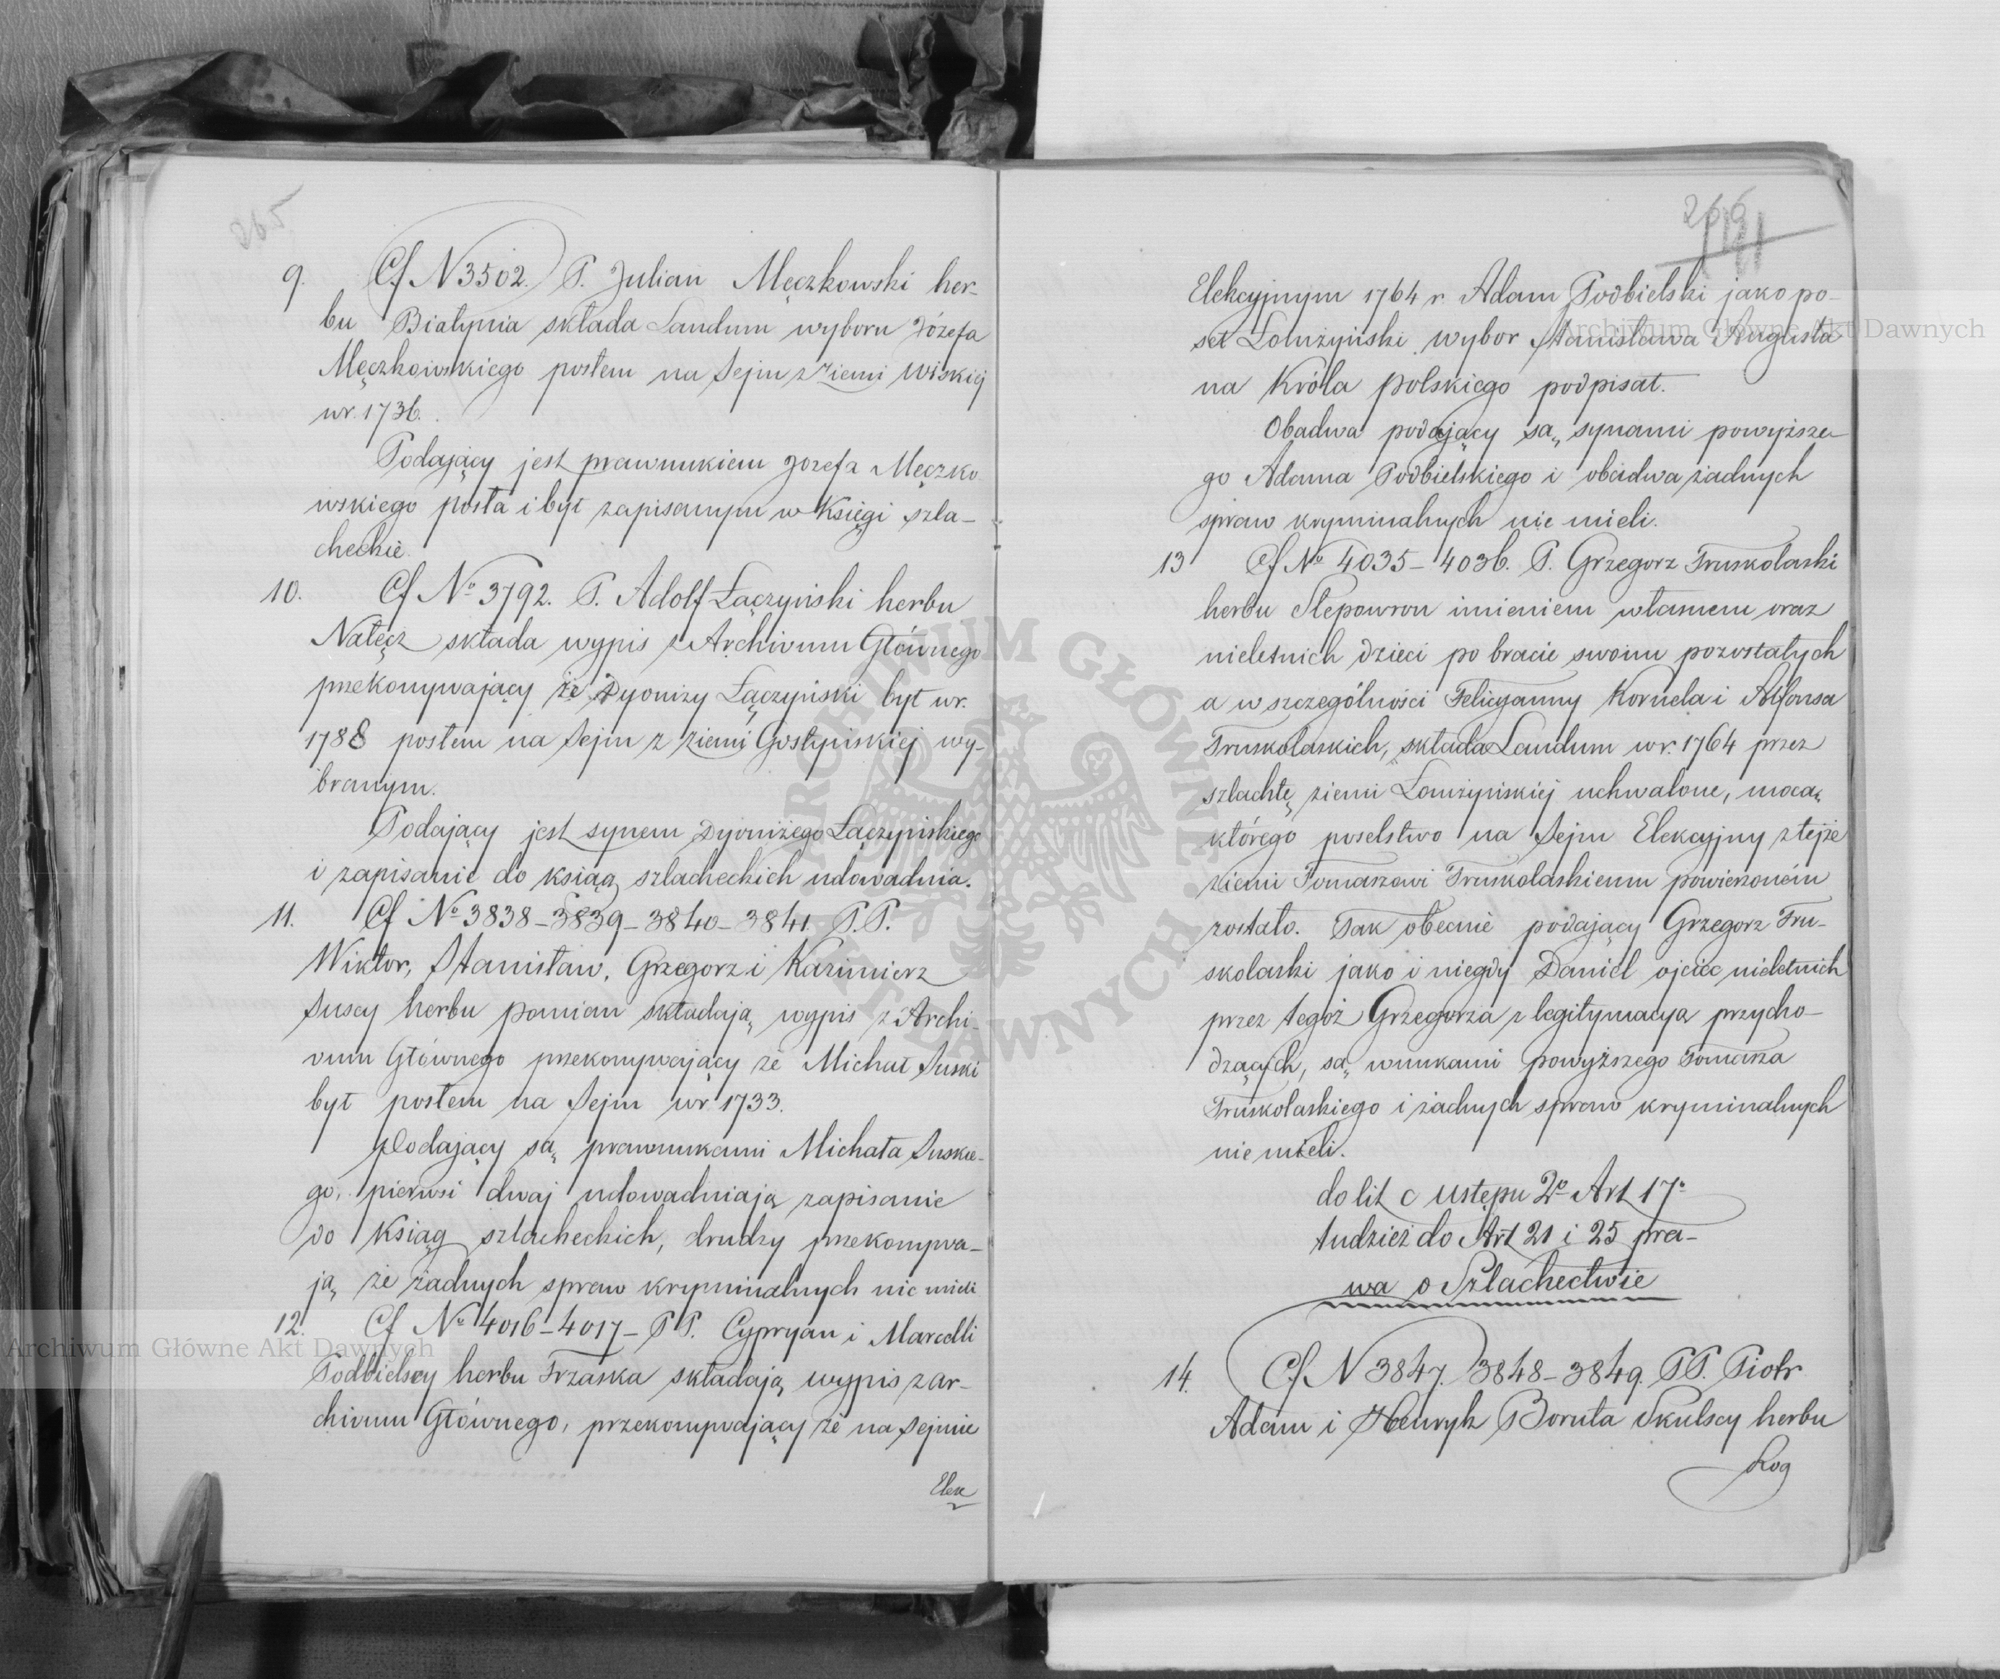 265
9. Cf N 3502. P. Julian Męczkowski her-
bu Białynia składa Laudum wyboru Józefa
Męczkowskiego posłem na Sejm z ziemi Wiskiej
w r. 1736.
Podający jest prawnukiem Józefa Męczko
wskiego posła i był zapisanym w Księgi szla-
checkie.
10. Cf No 3792. P. Adolf Łączyński herbu
Nałęcz składa wypis z Archivum Głównego
przekonywający że Dyonizy Łączyński był w r.
1788 posłem na Sejm z ziemi Gostyńskiej wy-
branym.
Podający jest synem Dyonizego Łączyńskiego
i zapisanie do ksiąg szlacheckich udowadnia.
11. Cf No 3838-3839-3840-3841 P.P.
Wiktor, Stanisław, Grzegorz i Kazimierz
Suscy herbu Pomian składają wypis z Archi-
vum Głównego przekonywający że Michał Suski
był posłem na Sejm w r 1733.
Podający są prawnukami Michała Suskie-
go, pierwsi dwaj udowadniają zapisanie
do ksiąg szlacheckich, drudzy przekonywa-
ją że żadnych spraw kryminalnych nie mieli
12. Cf No 4016-4017- PP. Cypryan i Marcelli
Podbielscy herbu Trzaska składają wypis z Ar-
chivum Głównego, przekonywający że na Sejmie
Elek
266
Elekcyjnym 1764 r. Adam Podbielski jako po-
seł Łomżyński wybor Stanisława Augusta
na Króla polskiego podpisał.
Obadwa podający są synami powyższe-
go Adama Podbielskiego i obadwa żadnych
spraw kryminalnych nie mieli.
13 Cf No 4035-4036. P. Grzegorz Truskolaski
herbu Slepowron imieniem własnem oraz
nieletnich dzieci po bracie swoim pozostałych
a w szczególności Felicyanny Kornela i Alfonsa
Truskolaskich, składa Laudum w r. 1764 przez
szlachtę ziemi Łomżyńskiej uchwalone, mocą
którego poselstwo na Sejm Elekcyjny z tejże
ziemi Tomaszowi Truskolaskiemu powierzonem
zostało. Tak obecnie podający Grzegorz Tru-
skolaski jako i niegdy Daniel ojciec nieletnich
przez tegoż Grzegorza z legitymacyą przycho-
dzących, są wnukami powyższego Tomasza
Truskolaskiego i żadnych spraw kryminalnych
nie mieli.
do lit c Ustępu 2o Art 17o
tudzież do Art 21 i 25 pra-
wa o Szlachectwie
14. Cf N 3847. 3848-3849. PP. Piotr
Adam i Henryk Boruta Skulscy herbu
Rog
Archiwum Główne Akt Dawnych
Archiwum Główne Akt Dawnych
ARCHIWUM GŁÓWNE AKT DAWNYCH